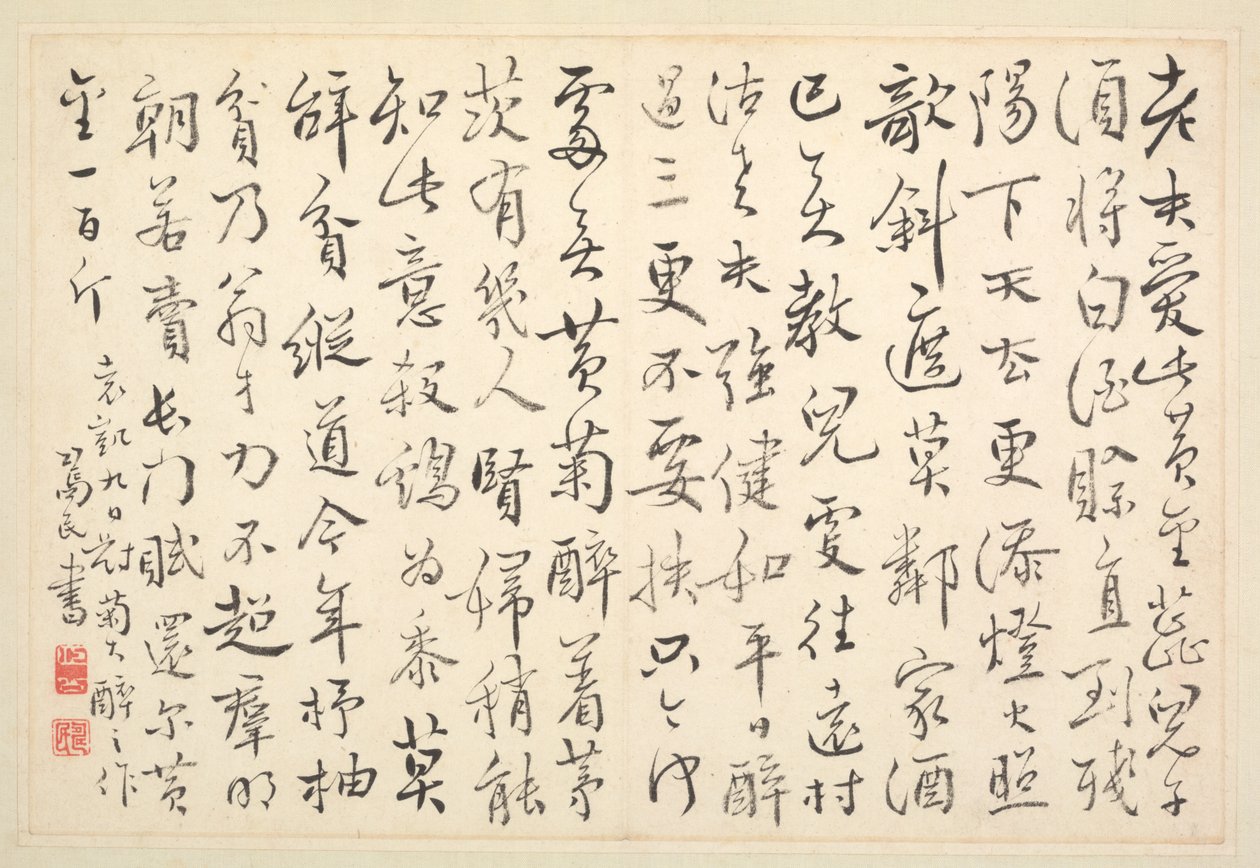 老夫愛此黃金蕋兒子
須將白酒賒直到殘
陽下天去更添燈火照
欹斜遮莫鄰家酒
已無教兒往遠村
沽老夫強健如平日醉
過三更不要扶只今何
處無黃菊醉着茅
茨有幾人賢婦稍能
知此意殺鷄為黍莫
辭貧縱道今年杼柚
貧乃翁才力不超羣明
朝若賣長門賦還尔黃
金一百斤
袁凱九日對菊大醉之作
民書